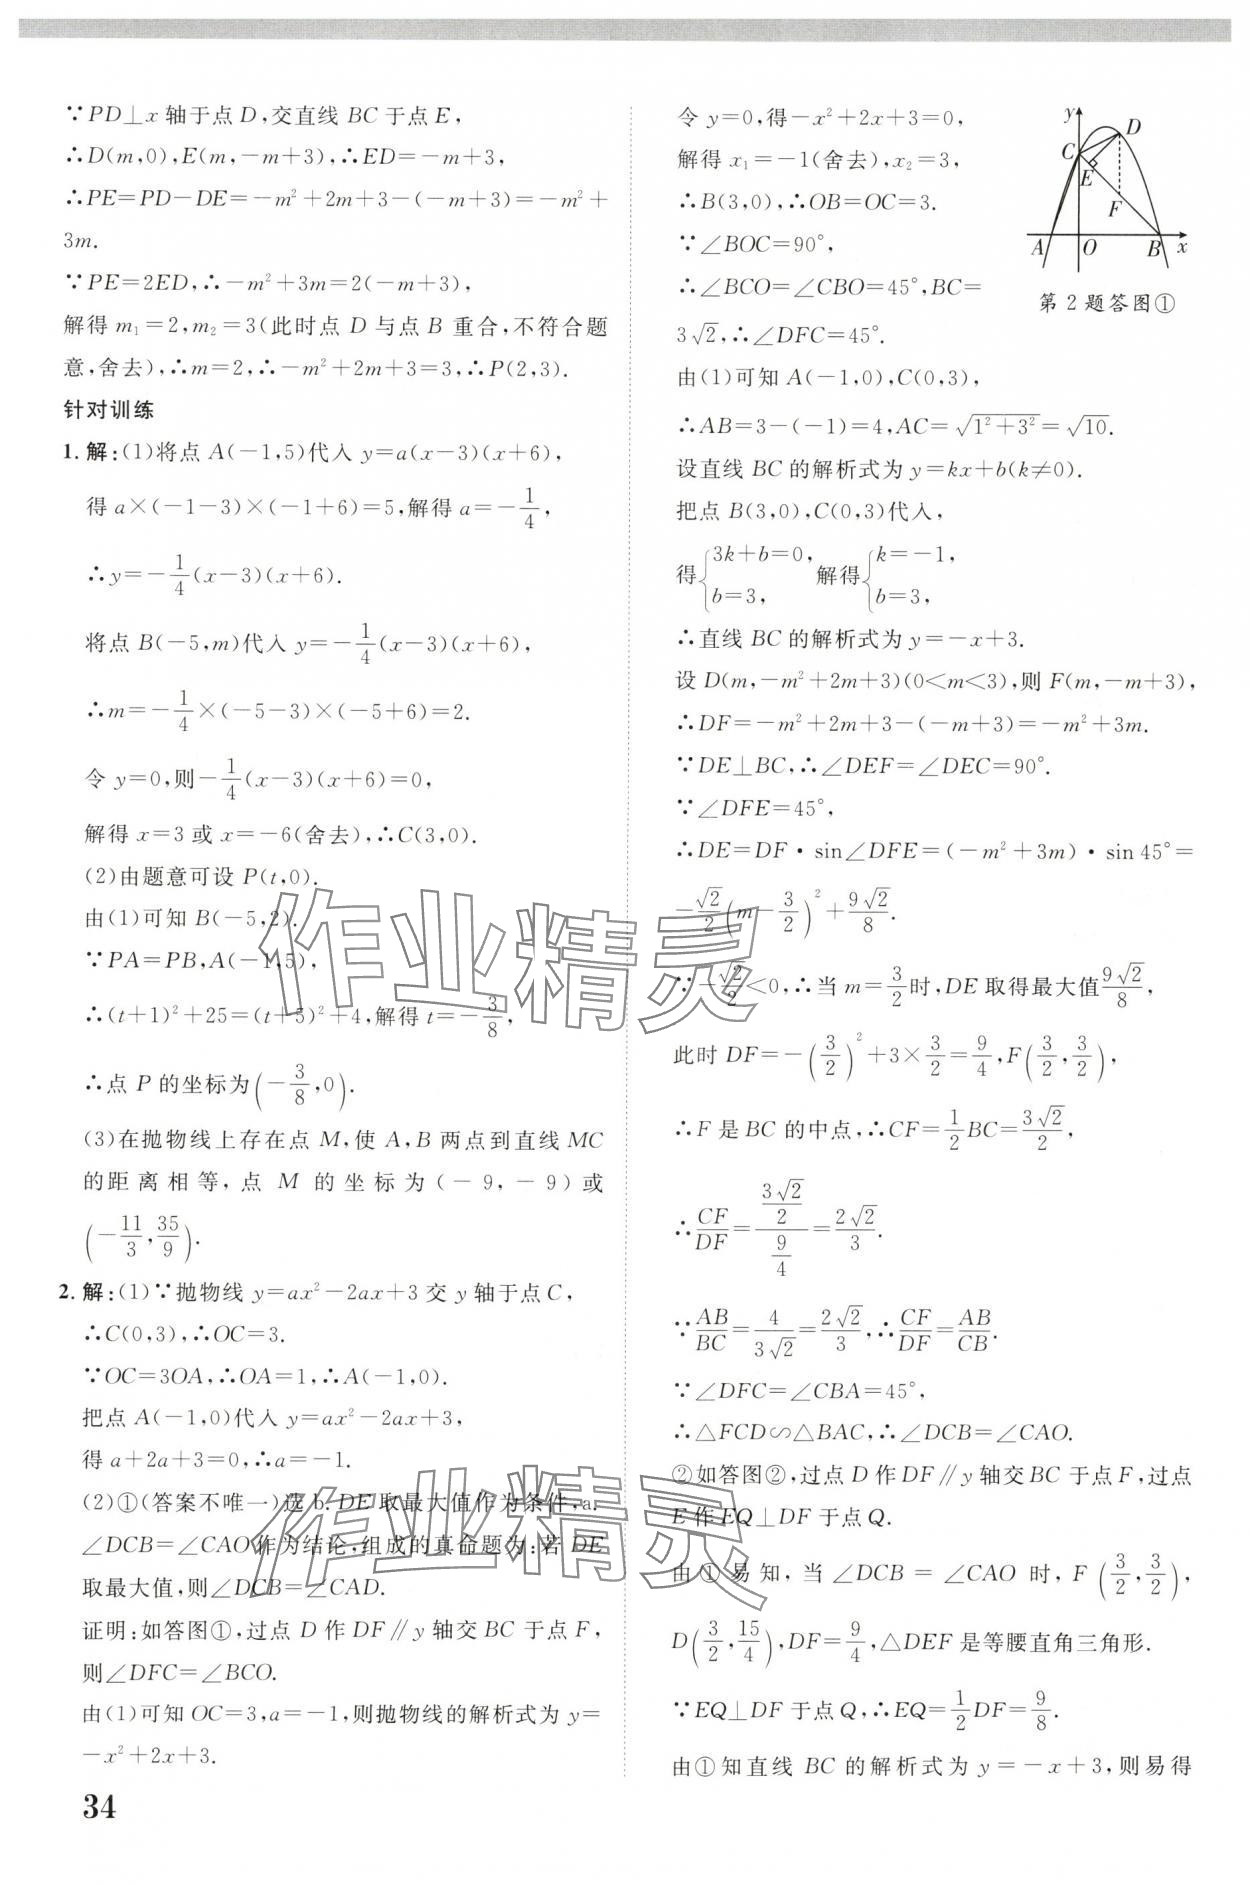 ∵PD⊥x轴于点D,交直线BC于点E,
∴D(m,0),E(m,-m+3),∴ED=-m+3,
∴PE=PD-DE=-m²+2m+3-(-m+3)=-m²+
3m.
∵PE=2ED,∴-m²+3m=2(-m+3),
解得m₁=2,m₂=3(此时点D与点B重合,不符合题
意,舍去),∴m=2,∴-m²+2m+3=3,∴P(2,3).
针对训练
1.解:(1)将点A(-1,5)代入y=a(x-3)(x+6),
得a×(-1-3)×(-1+6)=5,解得a=-1/4,
∴y=-1/4(x-3)(x+6).
将点B(-5,m)代入y=-1/4(x-3)(x+6),
∴m=-1/4×(-5-3)×(-5+6)=2.
令y=0,则-1/4(x-3)(x+6)=0,
解得x=3或x=-6(舍去),∴C(3,0).
(2)由题意可设P(t,0).
由(1)可知B(-5,2).
∵PA=PB,A(-1,5),
∴(t+1)²+25=(t+5)²+4,解得t=-3/8,
∴点P的坐标为(-3/8,0).
(3)在抛物线上存在点M,使A,B两点到直线MC
的距离相等,点M的坐标为(-9,-9)或
(-11/3,35/9).
2.解:(1)∵抛物线y=ax²-2ax+3交y轴于点C,
∴C(0,3),∴OC=3.
∵OC=3OA,∴OA=1,∴A(-1,0).
把点A(-1,0)代入y=ax²-2ax+3,
得a+2a+3=0,∴a=-1.
(2)①(答案不唯一)选b.DE取最大值作为条件,a.
∠DCB=∠CAO作为结论,组成的真命题为:若DE
取最大值,则∠DCB=∠CAD.
证明:如答图①,过点D作DF∥y轴交BC于点F,
则∠DFC=∠BCO.
由(1)可知OC=3,a=-1,则抛物线的解析式为y=
-x²+2x+3.
34
令y=0,得-x²+2x+3=0,
解得x₁=-1(舍去),x₂=3,
∴B(3,0),∴OB=OC=3.
∵∠BOC=90°,
∴∠BCO=∠CBO=45°,BC=
3√2,∴∠DFC=45°.
y
D
C
E
F
A
O
B
x
第2题答图①
由(1)可知A(-1,0),C(0,3),
∴AB=3-(-1)=4,AC=√(1²+3²)=√10.
设直线BC的解析式为y=kx+b(k≠0).
把点B(3,0),C(0,3)代入,
得{3k+b=0, b=3, 解得{k=-1, b=3,
∴直线BC的解析式为y=-x+3.
设D(m,-m²+2m+3)(0<m<3),则F(m,-m+3),
∴DF=-m²+2m+3-(-m+3)=-m²+3m.
∵DE⊥BC,∴∠DEF=∠DEC=90°.
∵∠DFE=45°,
∴DE=DF·sin∠DFE=(-m²+3m)·sin 45°=
-√2/2(m-3/2)²+9√2/8.
∵-√2/2<0,∴当m=3/2时,DE取得最大值9√2/8,
此时DF=-(3/2)²+3×3/2=9/4,F(3/2,3/2),
∴F是BC的中点,∴CF=1/2BC=3√2/2,
∴CF/DF=(3√2/2)/(9/4)=2√2/3.
∵AB/BC=4/3√2=2√2/3,∴CF/DF=AB/CB.
∵∠DFC=∠CBA=45°,
∴△FCD∽△BAC,∴∠DCB=∠CAO.
②如答图②,过点D作DF∥y轴交BC于点F,过点
E作EQ⊥DF于点Q.
由①易知,当∠DCB=∠CAO时,F(3/2,3/2),
D(3/2,15/4),DF=9/4,△DEF是等腰直角三角形.
∵EQ⊥DF于点Q,∴EQ=1/2DF=9/8.
由①知直线BC的解析式为y=-x+3,则易得
作业精灵
作业精灵